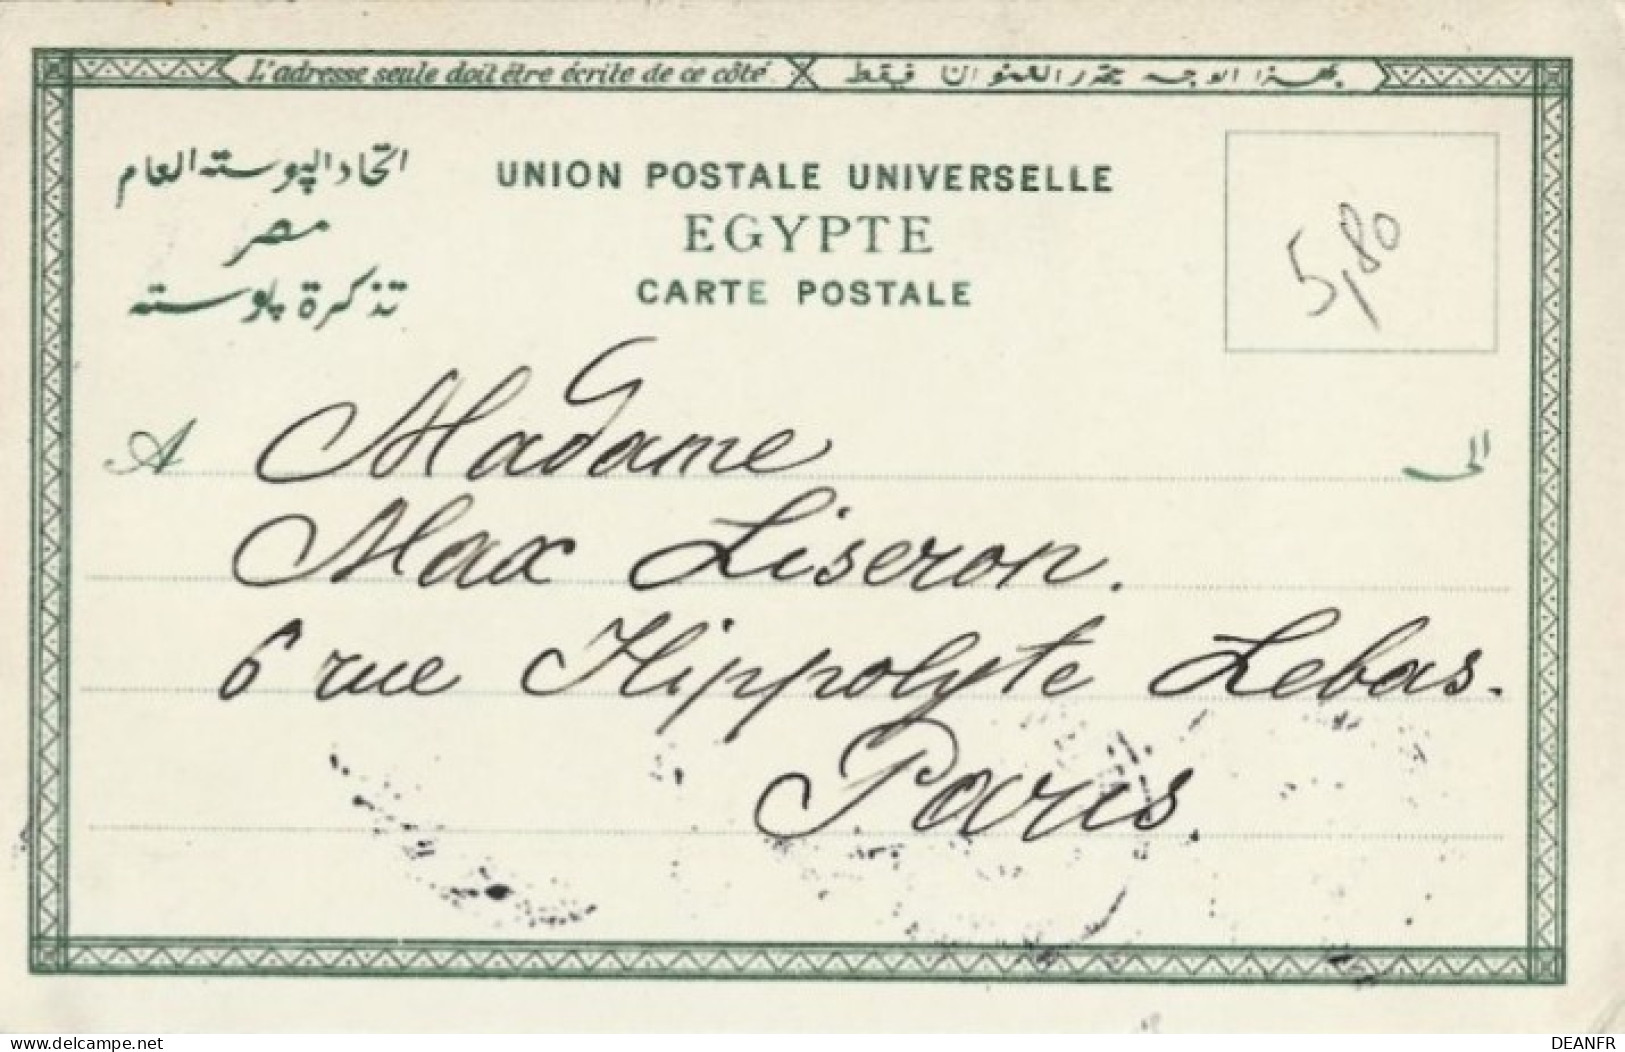 L'adresse seule doit être écrite de ce côté. بهذا الوجه يحرر العنوان فقط
اتحاد الپوسته العام
مصر
تذكرة پوسته
UNION POSTALE UNIVERSELLE
EGYPTE
CARTE POSTALE
5,80
A Madame الى
Max Liseron.
6 rue Hippolyte Lebas.
Paris.
www.delcampe.net
DEANFR